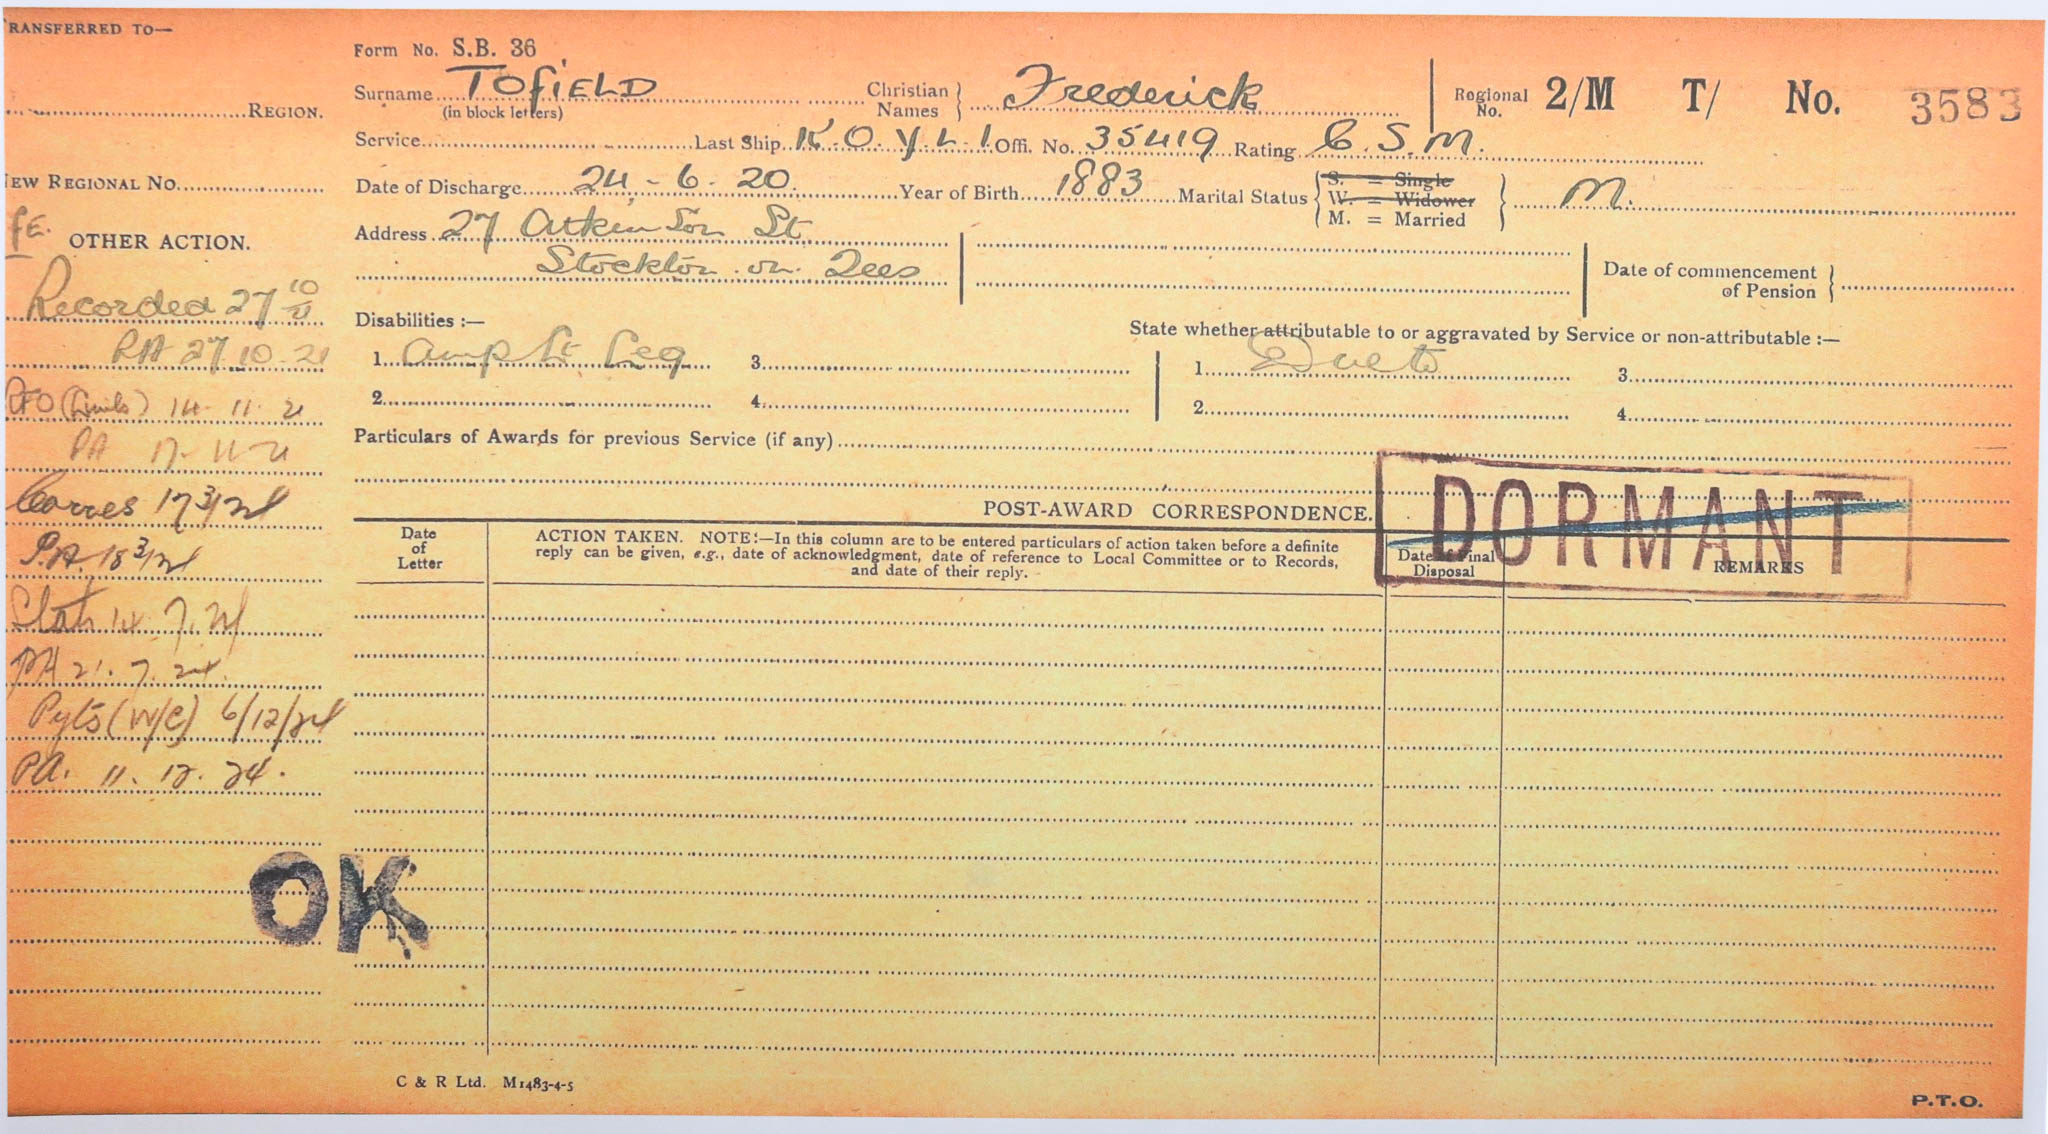 RANSFERRED TO—
REGION.
EW REGIONAL NO.
FE.
OTHER ACTION.
Recorded 27 10/21
PA 27.10.21
14. 11. 21
PA 17-11-21
Corres 17 3/24
P.A. 18 3/24
14. 7. 24
PA 21. 7. 24.
Pyts (W/C) 6/12/24
PA. 11. 12. 24.
OK
Form No. S.B. 36
Surname TOFIELD Christian Names Frederick Regional No. 2/M T/ No. 3583
(in block letters)
Service Last Ship K.O.Y.L.I Offi. No. 35419 Rating C.S.M.
Date of Discharge 24-6.20. Year of Birth 1883 Marital Status S. = Single W. = Widower M. = Married M.
Address 27 Atkinson St.
Stockton. on. Tees
Date of commencement of Pension
Disabilities :—
State whether attributable to or aggravated by Service or non-attributable :—
1. Amp Lt Leg 3. 1. Due to 3.
2. 4. 2. 4.
Particulars of Awards for previous Service (if any)
DORMANT
POST-AWARD CORRESPONDENCE.
Date of Letter
ACTION TAKEN. NOTE:—In this column are to be entered particulars of action taken before a definite
reply can be given, e.g., date of acknowledgment, date of reference to Local Committee or to Records,
and date of their reply.
Date of Final Disposal
REMARKS
C & R Ltd. M1483-4-5
P.T.O.